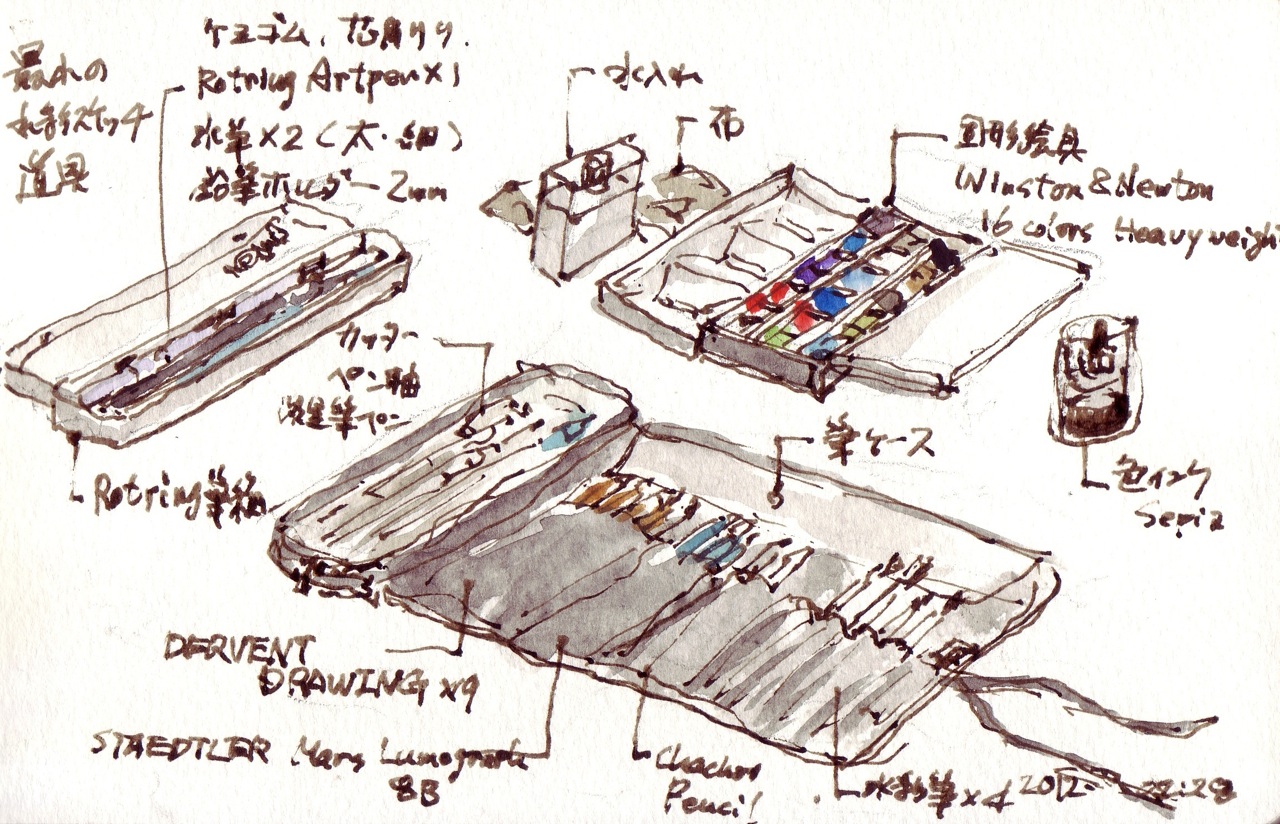 最近の
水彩スケッチ
道具
ケユゴム、芯削り.
Rotring Artpen×1
水筆×2(太・細)
鉛筆ホルダー2mm
水入れ
布
固形絵具
Winston & Newton
16 colors Heavyweigh
カッター
ペン軸
筆ペン
Rotring筆箱
筆ケース
色インク
Sepia
DERVENT
DRAWING ×9
STAEDTLER Mars Lumograph
8B
Pencil
水彩筆×4